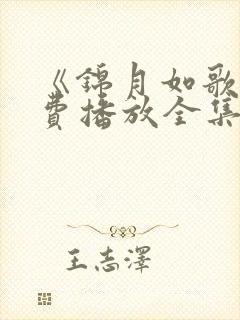 《锦月如歌
费播放全集
王志泽